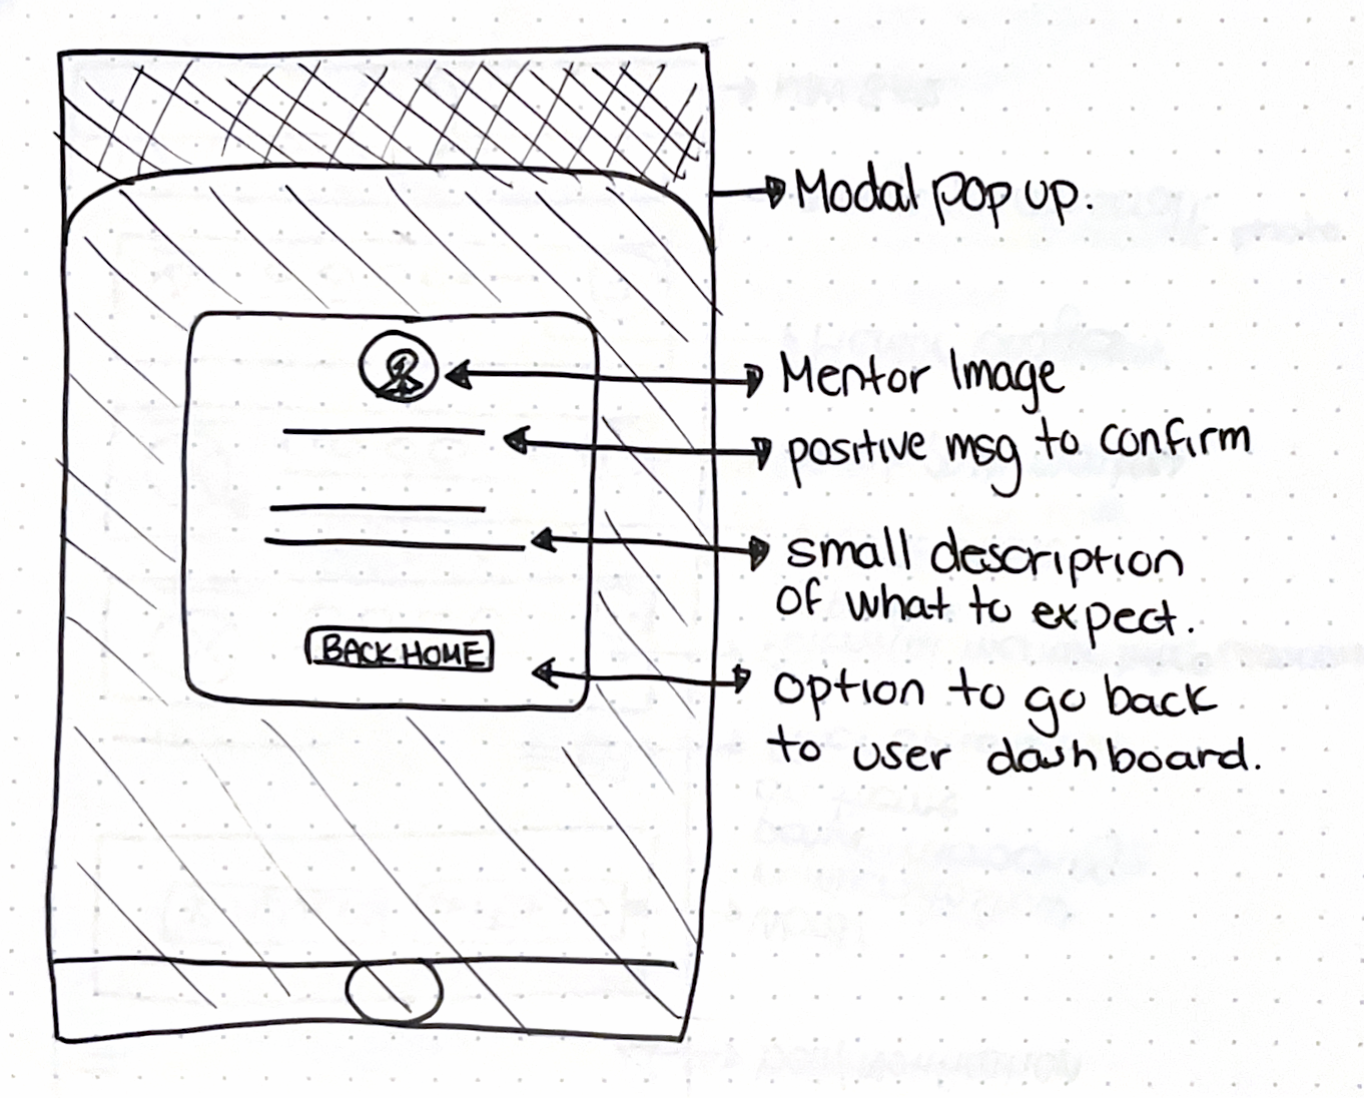 Modal pop up.
Mentor Image
positive msg to confirm
small description
of what to expect.
BACK HOME
option to go back
to user dashboard.